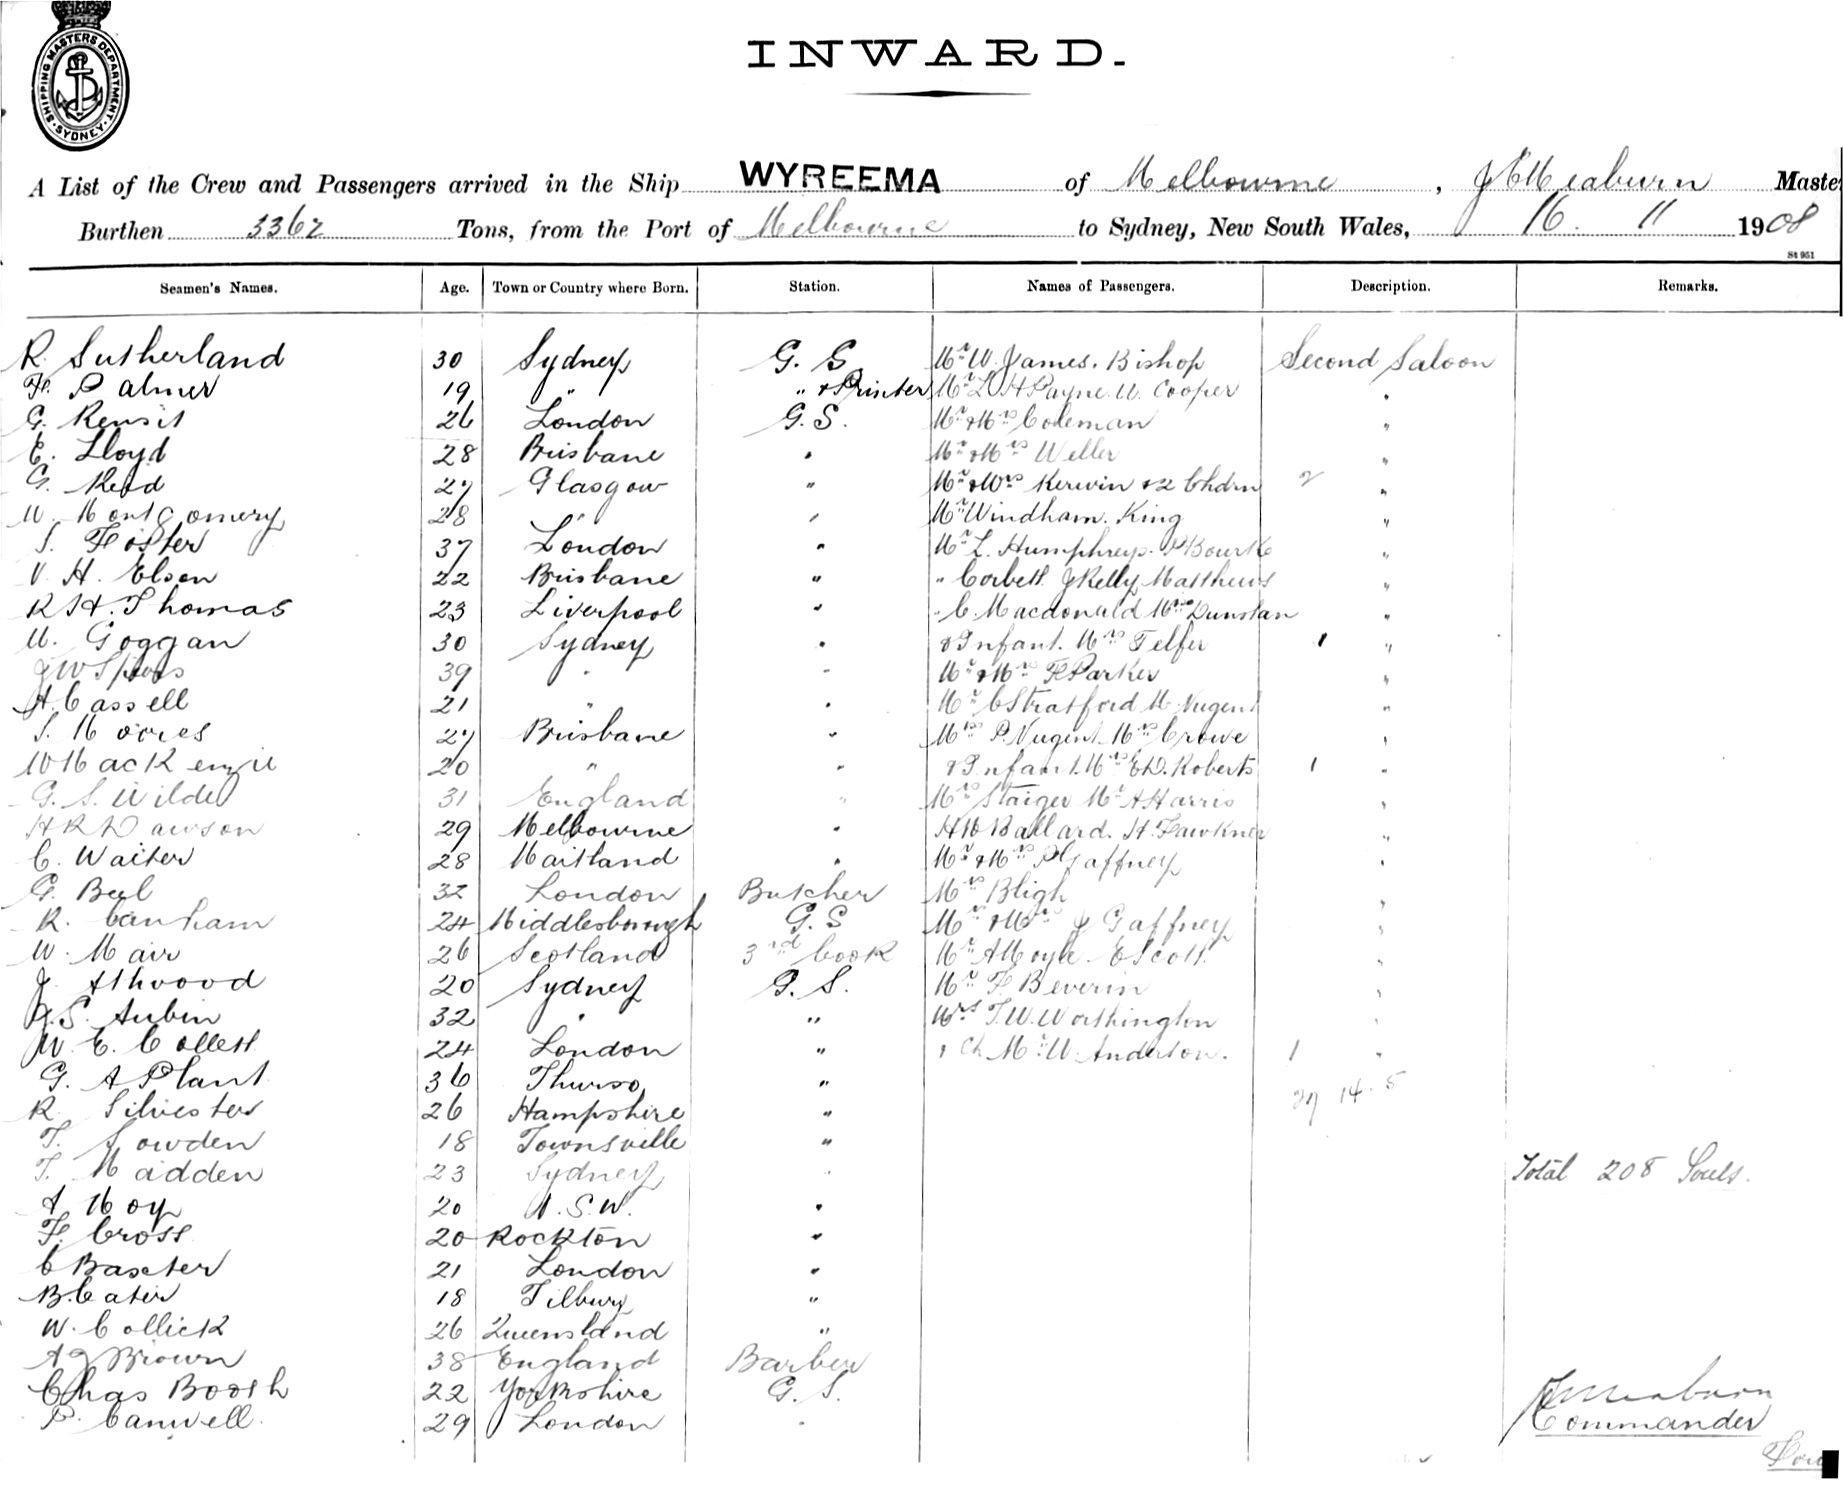 SHIPPING MASTERS DEPARTMENT. SYDNEY.
INWARD.
A List of the Crew and Passengers arrived in the Ship WYREEMA of Melbourne, J E Meaburn Maste
Burthen 3362 Tons, from the Port of Melbourne to Sydney, New South Wales, 16. 11 1908
St 951
Seamen's Names. Age. Town or Country where Born. Station. Names of Passengers. Description. Remarks.
R. Sutherland 30 Sydney G. S Mr W. James. Bishop Second Saloon
F. Palmer 19 " " & Printer Mr L H Payne. W. Cooper "
G. Rensit 26 London G.S. Mr & Mrs Coleman "
E. Lloyd 28 Brisbane " Mr & Mrs Weller "
G. Reid 27 Glasgow " Mr & Mrs Kerwin & 2 Chdrn 2 "
W. Montgomery 28 " " Mr Windham. King "
S. Foster 37 London " Mr L. Humphreys. P Bourke "
V. H. Elson 22 Brisbane " " Corbett. J Kelly Matthews "
R H. Thomas 23 Liverpool " " C. Macdonald Mrs Dunstan "
W. Goggan 30 Sydney " & Infant. Mrs Telfer 1 "
J W 39 " " Mr & Mrs F Parker "
H. Cassell 21 " " Mr C Stratford M. Nugent "
S. Moores 27 Brisbane " Mrs P. Nugent. Mrs Crowe "
W Mackenzie 20 " " & Infant. Mrs E D. Roberts 1 "
G. S. Wilde 31 England " Mrs Staiger Mr A Harris "
H R Dawson 29 Melbourne " H W Ballard. H. Fawkner "
C. Waiter 28 Maitland " Mr & Mrs P Gaffney "
G. Bul 32 London Butcher Mrs Bligh "
R. Canham 24 Middlesborough G.S Mr & Mrs J Gaffney "
W. Mair 26 Scotland 3rd Cook Mr A Moyle E Scott "
J. Athwood 20 Sydney G. S. Mr F Beverin "
S. Aubin 32 " " Mrs T. W. Worthington "
W. E. Collett 24 London " 1 Ch Mr W. Anderson. 1 "
G. A Plant 36 Thurso "
27 14 . 5
R. Silvester 26 Hampshire "
T. Gowden 18 Townsville "
T. Madden 23 Sydney " Total 208 Souls.
A. Hoy 20 N.S.W. "
F. Cross 20 Rockton "
C Baxter 21 London "
B. Cater 18 Tilbury "
W. Collick 26 Queensland "
A J Brown 38 England Barber
Chas Booth 22 Yorkshire G. S. Meaburn
P. Canwell 29 London " Commander